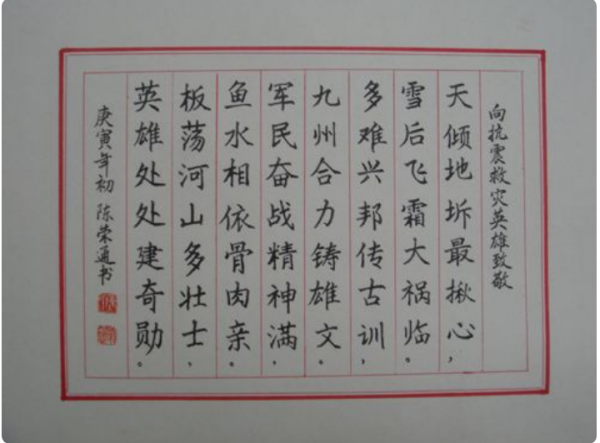 向抗震救灾英雄致敬
天倾地坼最揪心，
雪后飞霜大祸临。
多难兴邦传古训，
九州合力铸雄文。
军民奋战精神满，
鱼水相依骨肉亲。
板荡河山多壮士，
英雄处处建奇勋。
庚寅年初 陈荣通书